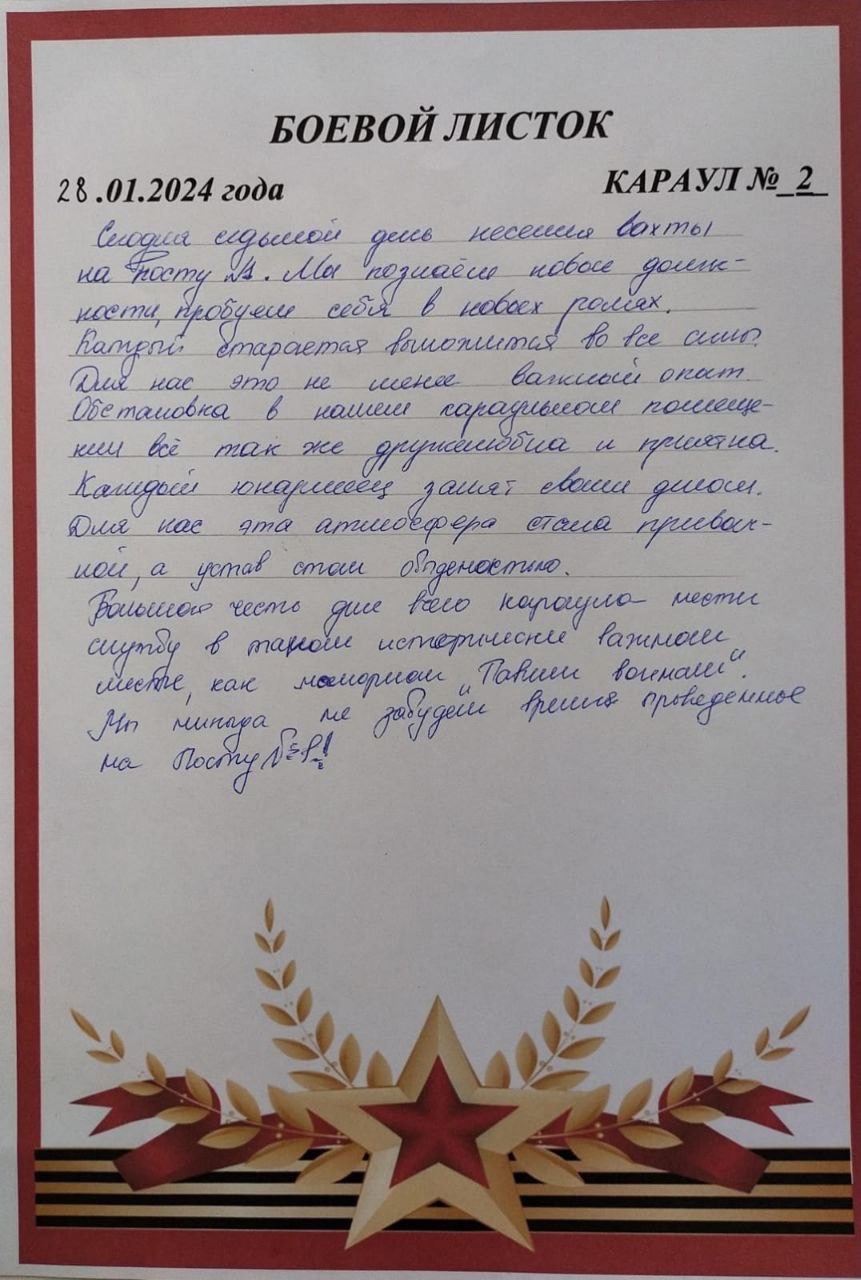 БОЕВОЙ ЛИСТОК
28.01.2024 года КАРАУЛ №_2_
Сегодня седьмой день несения вахты
на Посту №1. Мы познаём новые долж-
ности, пробуем себя в новых ролях.
Каждый старается выложится во все силы.
Для нас это не менее важный опыт.
Обстановка в нашем караульном помеще-
нии всё так же дружелюбна и приятна.
Каждый юнармеец занят своим делом.
Для нас эта атмосфера стала привыч-
ной, а устав стал обыденостью.
Большая честь для всего караула нести
службу в таком исторически важном
месте, как мемориал "Павшим воинам".
Мы никогда не забудем время проведенное
на Посту №1!